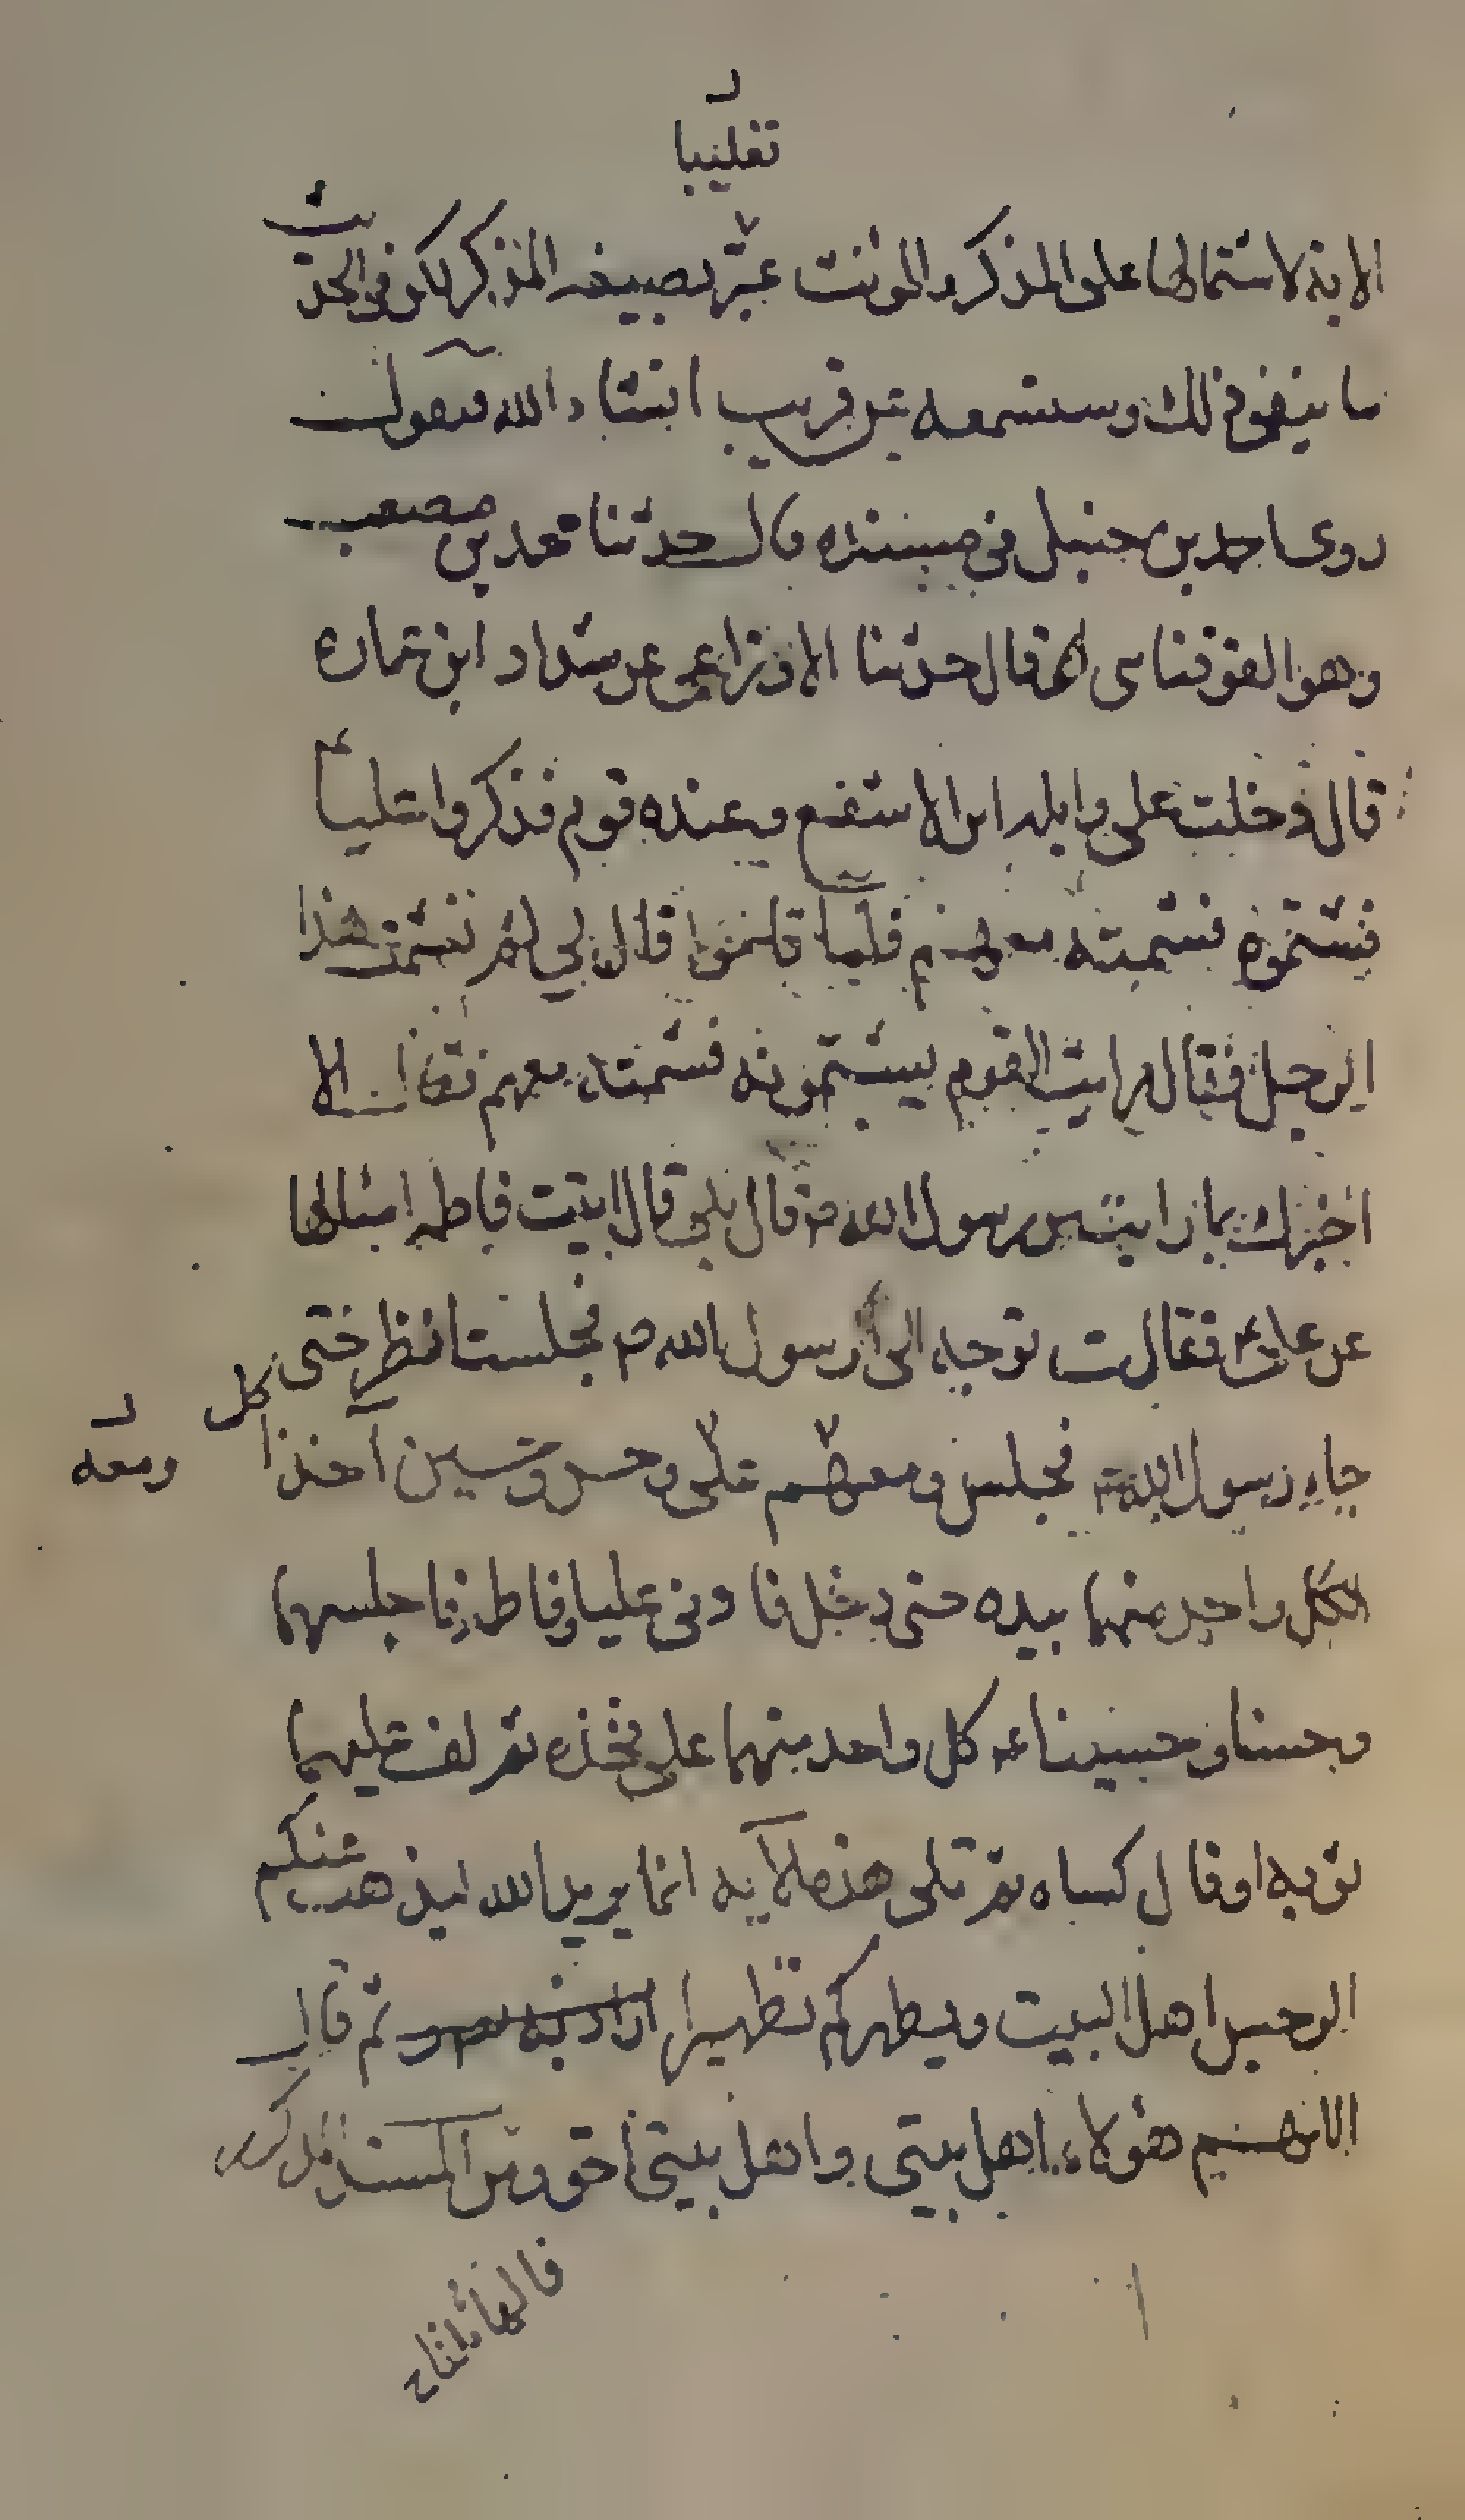 د
تغليبا
الاية لاشتمالها على المذكر والمؤنث عبّر بصيغه المذكر لكن في الحديث
ما ينفي ذلك وستسمعه عن قريب انشاء الله فيقول
روى احمد بن حنبل في مسنده قال حدثنا محمد بن مصعب
وهو القرقسائى قال حدثنا الاوزاعي عن شداد ابن عمارة
قال دخلت على واثله ابن الاسقع وعنده قوم فذكروا عليا ع
فشتموه فشتمته معهم فلما قاموا قال لي لم شتمت هذا
الرجل فقال رايت القوم يشتمونه فشتمته معهم فقال الا
اخبرك بما رايت من رسول الله ص قال بلى قال اتيت فاطمه اسئالها
عن علي ع فقالت توجه الى رسول الله ص فجلست انظر حتى
جاء رسول الله ص فجلس ومعهم علي وحسن وحسين آخذا كل
د
ومعه
كل واحد منهما بيده حتى دخل فادنى عليا وفاطمة فاجلسهما
وحسنا وحسينا ع كل واحد منهما على فخذه ثم لف عليهما
ثوبه او قال كساه ثم تلى هذه الآيه انما يريد الله ليذهب عنكم
الرجس اهل البيت ويطهركم تطهيرا ثم قال
اللهم هؤلاء اهل بيتي واهل بيتي احق ومن المسند المذكور